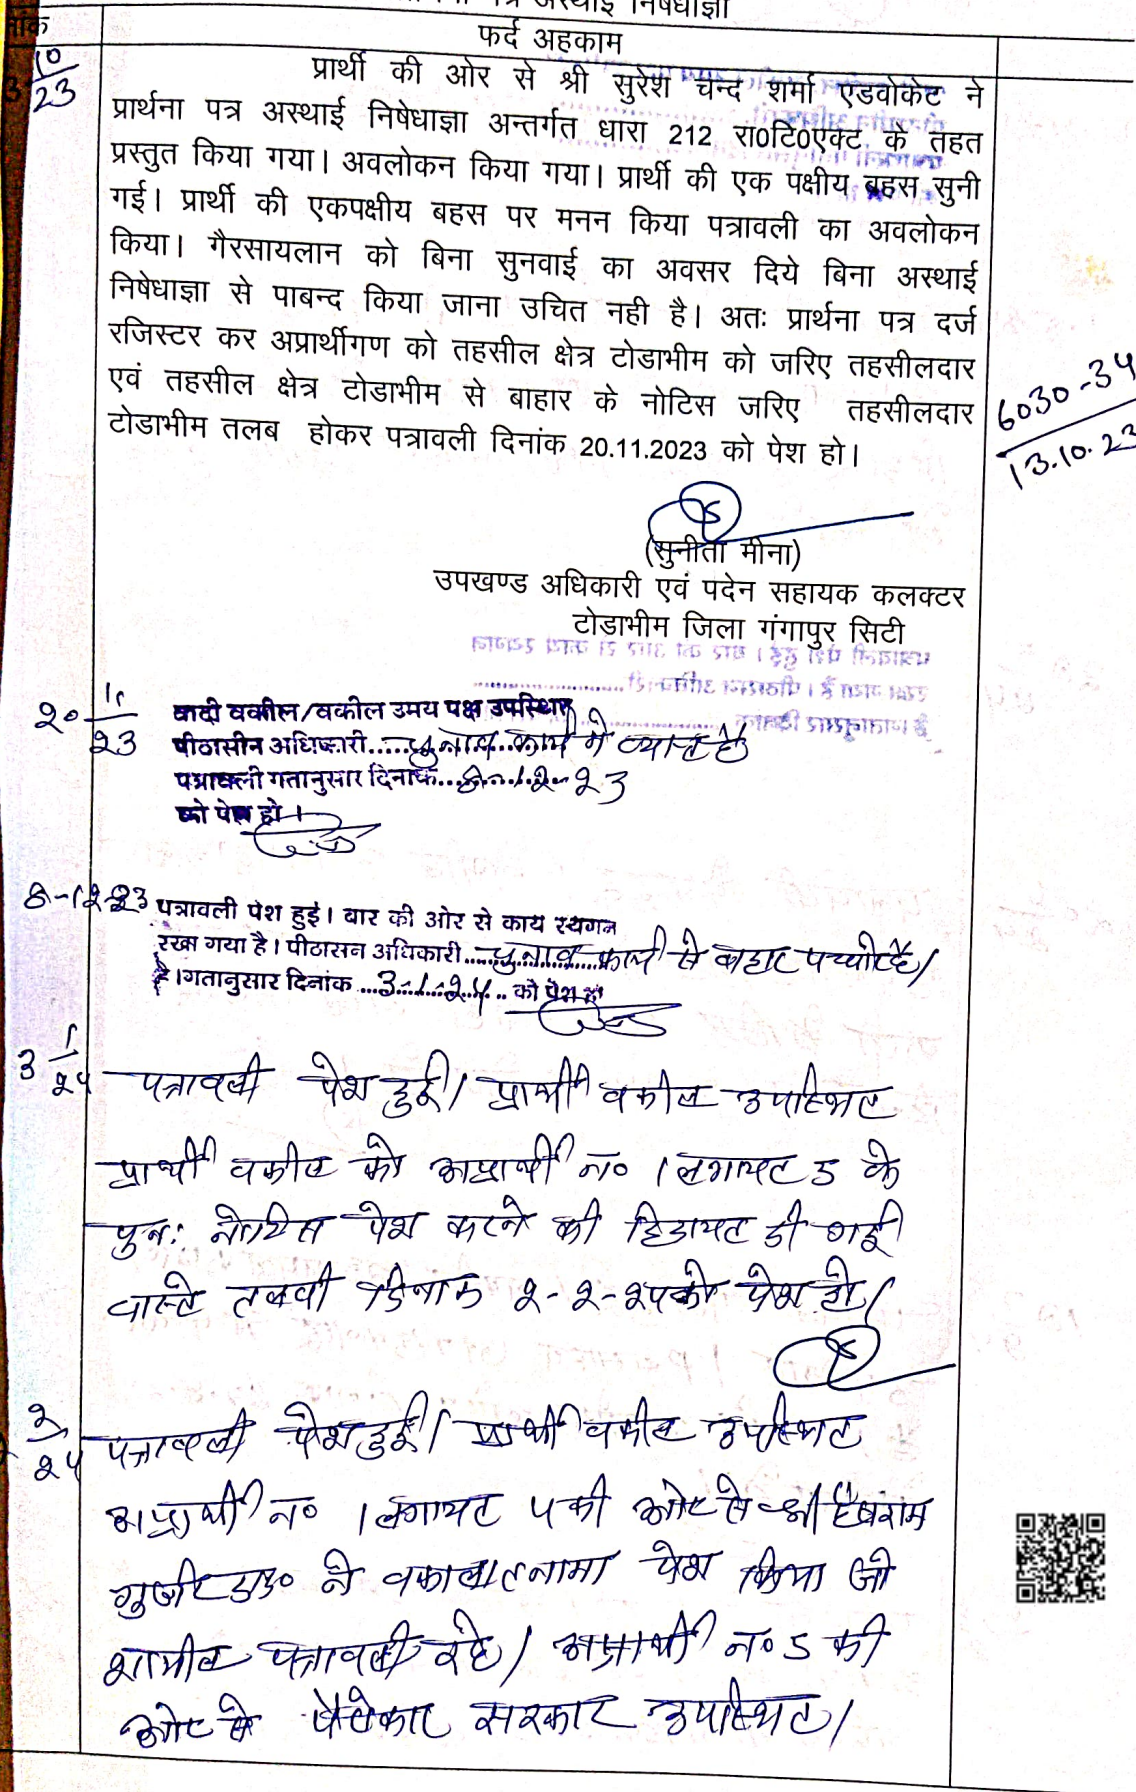 अस्थाई निषेधाज्ञा
फर्द अहकाम
10
23
प्रार्थी की ओर से श्री सुरेश चन्द शर्मा एडवोकेट ने
प्रार्थना पत्र अस्थाई निषेधाज्ञा अन्तर्गत धारा 212 रा0टि0एक्ट के तहत
प्रस्तुत किया गया। अवलोकन किया गया। प्रार्थी की एक पक्षीय बहस सुनी
गई। प्रार्थी की एकपक्षीय बहस पर मनन किया पत्रावली का अवलोकन
किया। गैरसायलान को बिना सुनवाई का अवसर दिये बिना अस्थाई
निषेधाज्ञा से पाबन्द किया जाना उचित नही है। अतः प्रार्थना पत्र दर्ज
रजिस्टर कर अप्रार्थीगण को तहसील क्षेत्र टोडाभीम को जरिए तहसीलदार
एवं तहसील क्षेत्र टोडाभीम से बाहार के नोटिस जरिए तहसीलदार
टोडाभीम तलब होकर पत्रावली दिनांक 20.11.2023 को पेश हो।
6030-34
13.10.23
(सुनीता मीना)
उपखण्ड अधिकारी एवं पदेन सहायक कलक्टर
टोडाभीम जिला गंगापुर सिटी
20 11
23
वादी वकील/वकील उभय पक्ष उपस्थित
पीठासीन अधिकारी.....चुनाव कार्य में व्यस्त है
पत्रावली गतानुसार दिनांक...8-12-23
को पेश हो।
8-12-23
पत्रावली पेश हुई। बार की ओर से कार्य स्थगन
रखा गया है। पीठासन अधिकारी.....चुनाव कार्य से बाहर है।
है।गतानुसार दिनांक ...3-1-24.. को पेश हो
3 1
24
पत्रावली पेश हुई। प्रार्थी वकील उपस्थित
प्रार्थी वकील को अप्रार्थी न० 1 लगायत 5 के
पुनः नोटिस पेश करने की हिदायत दी गई
वास्ते तलवी दिनांक 2-2-24 को पेश हो।
2
24
पत्रावली पेश हुई। प्रार्थी वकील उपस्थित
अप्रार्थी न० 1 लगायत 4 की ओर से श्री
गुर्जर एड० ने वकालातनामा पेश किया जो
शामील पत्रावली रहे। अप्रार्थी न० 5 की
ओर से पैरोकार सरकार उपस्थित।